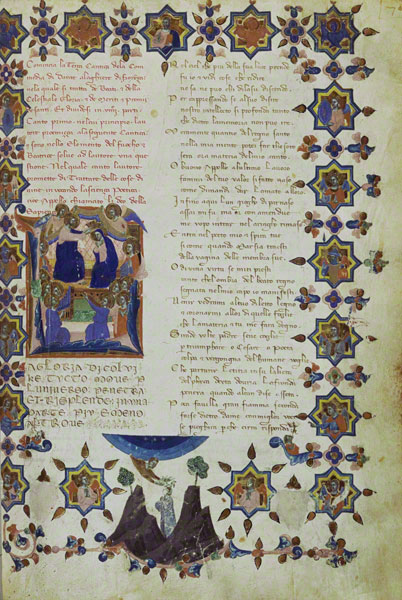 Comincia la Terza Cantica dela Com
media di Dante
nela quale si tratta de beati & dela
Celestiale Gloria & de meriti & premi
de santi
Canto primo nelcui principio
alaseguente Cantica
e sono nello Elemento del fuocho e
Beatrice solve alautore una que
stione Nelquale canto lautore
promette di trattare delle cose di
uine
Appollo chiamato il deo della
Sapientia
A GLORIA DI COLVI
HE TVCTO MOVE P
LVNIVERSO PENETRA
ET RISPLENDE INVNA
PARTE PIV E MENO
ALTROVE
Nel ciel che piu della sua luce prende
fu io e vidi cose che ridire
ne sa ne puo chi dila su discende
Per che appressando se alsuo disire
nostro intellecto si profonda tanto
che dietro lamemoria non puo ire
Veramente quanto del regno santo
nella mia mente potei far thesoro
sera ora materia del mio canto
O buono Apollo alultimo lauoro
fammi del tuo valor si fatto vaso
come dimandi dar lamato alloro
Infino aqui lun giogo di parnaso
assai mi fu ma or con amendue
me vopo intrar nel aringo rimaso
Entra nel petto mio e spira tue
si come quando Marsia traesti
della vagina delle membra sue
O diuina virtu se mi ti presti
tanto che lombra del beato regno
segnata nel mio capo io manifesti
Venir vedrami altuo diletto legno
e coronarmi allor di quelle foglie
che lamateria e tu me farai degno
Si rade volte padre sene coglie
per triumphare o Cesare o Poeta
colpa e vergogna del humane voglie
Che parturir letitia in su la lieta
delphica deyta dovria la fronda
peneia quando alcun dise asseta
Poca favilla gran fiamma seconda
forse dietro dame con miglior voci
se preghera perche cirra risponda